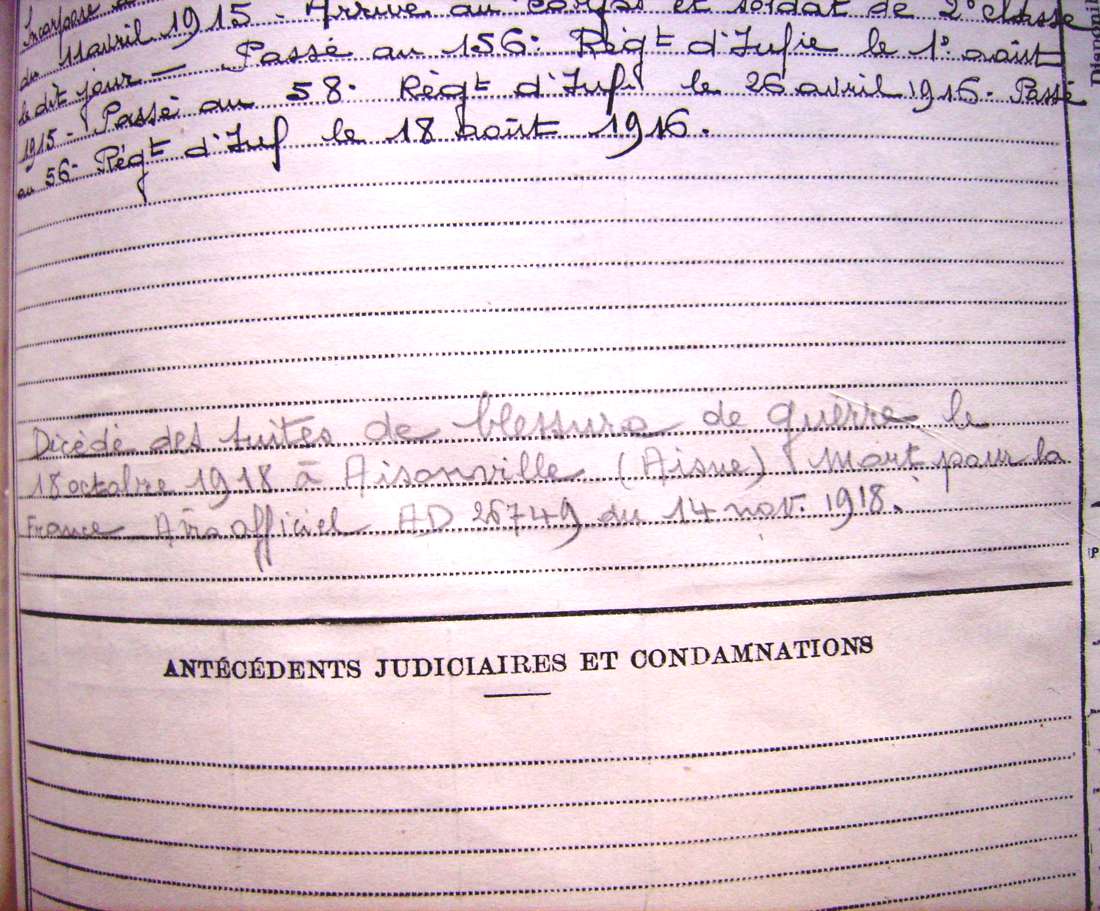 Incorporé
du 11 avril 1915. Arrivé au corps et soldat de 2e classe
le dit jour — Passé au 156e Régt d'Infie le 1o août
1915. Passé au 58e Régt d'Infie le 26 avril 1916. Passé
au 56e Régt d'Inf le 18 août 1916.
Décédé des suites de blessure de guerre le
18 octobre 1918 à Aisonville (Aisne) Mort pour la
France Avis officiel AD 26749 du 14 nov. 1918.
ANTÉCÉDENTS JUDICIAIRES ET CONDAMNATIONS